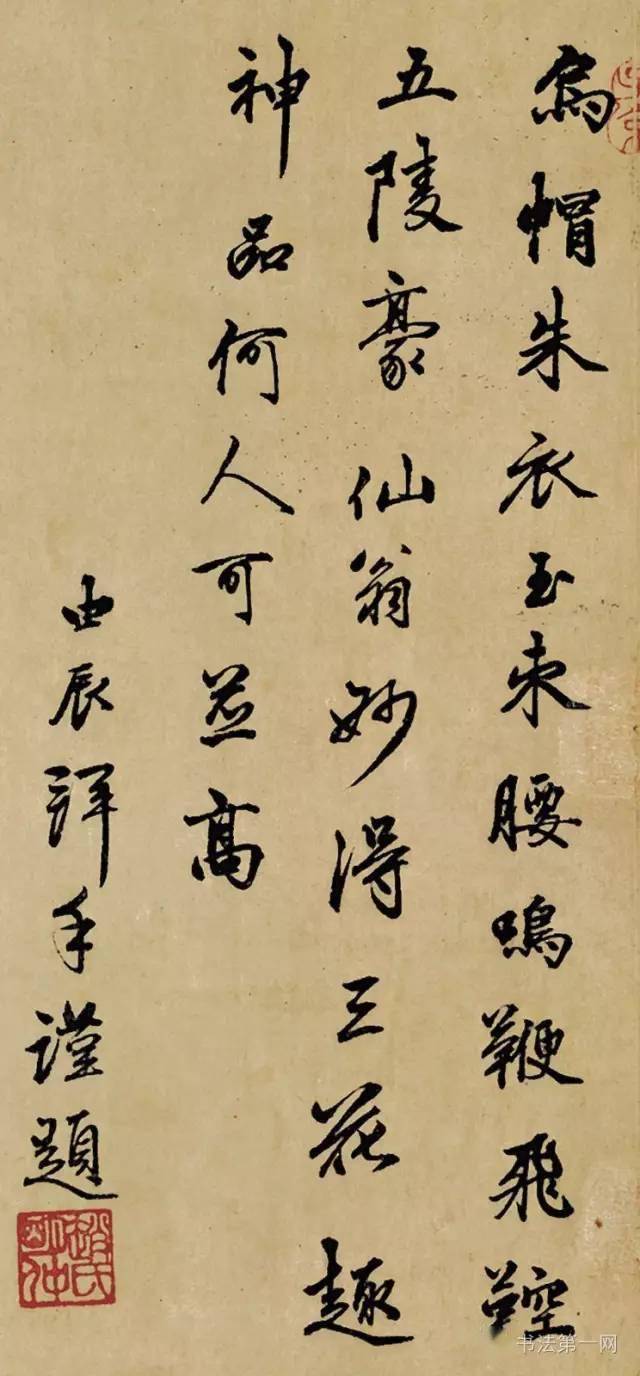 烏帽朱衣玉束腰鳴鞭飛鞚
五陵豪仙翁妙得三花趣
神品何人可並高
由辰拜手謹題
趙氏明仲
书法第一网